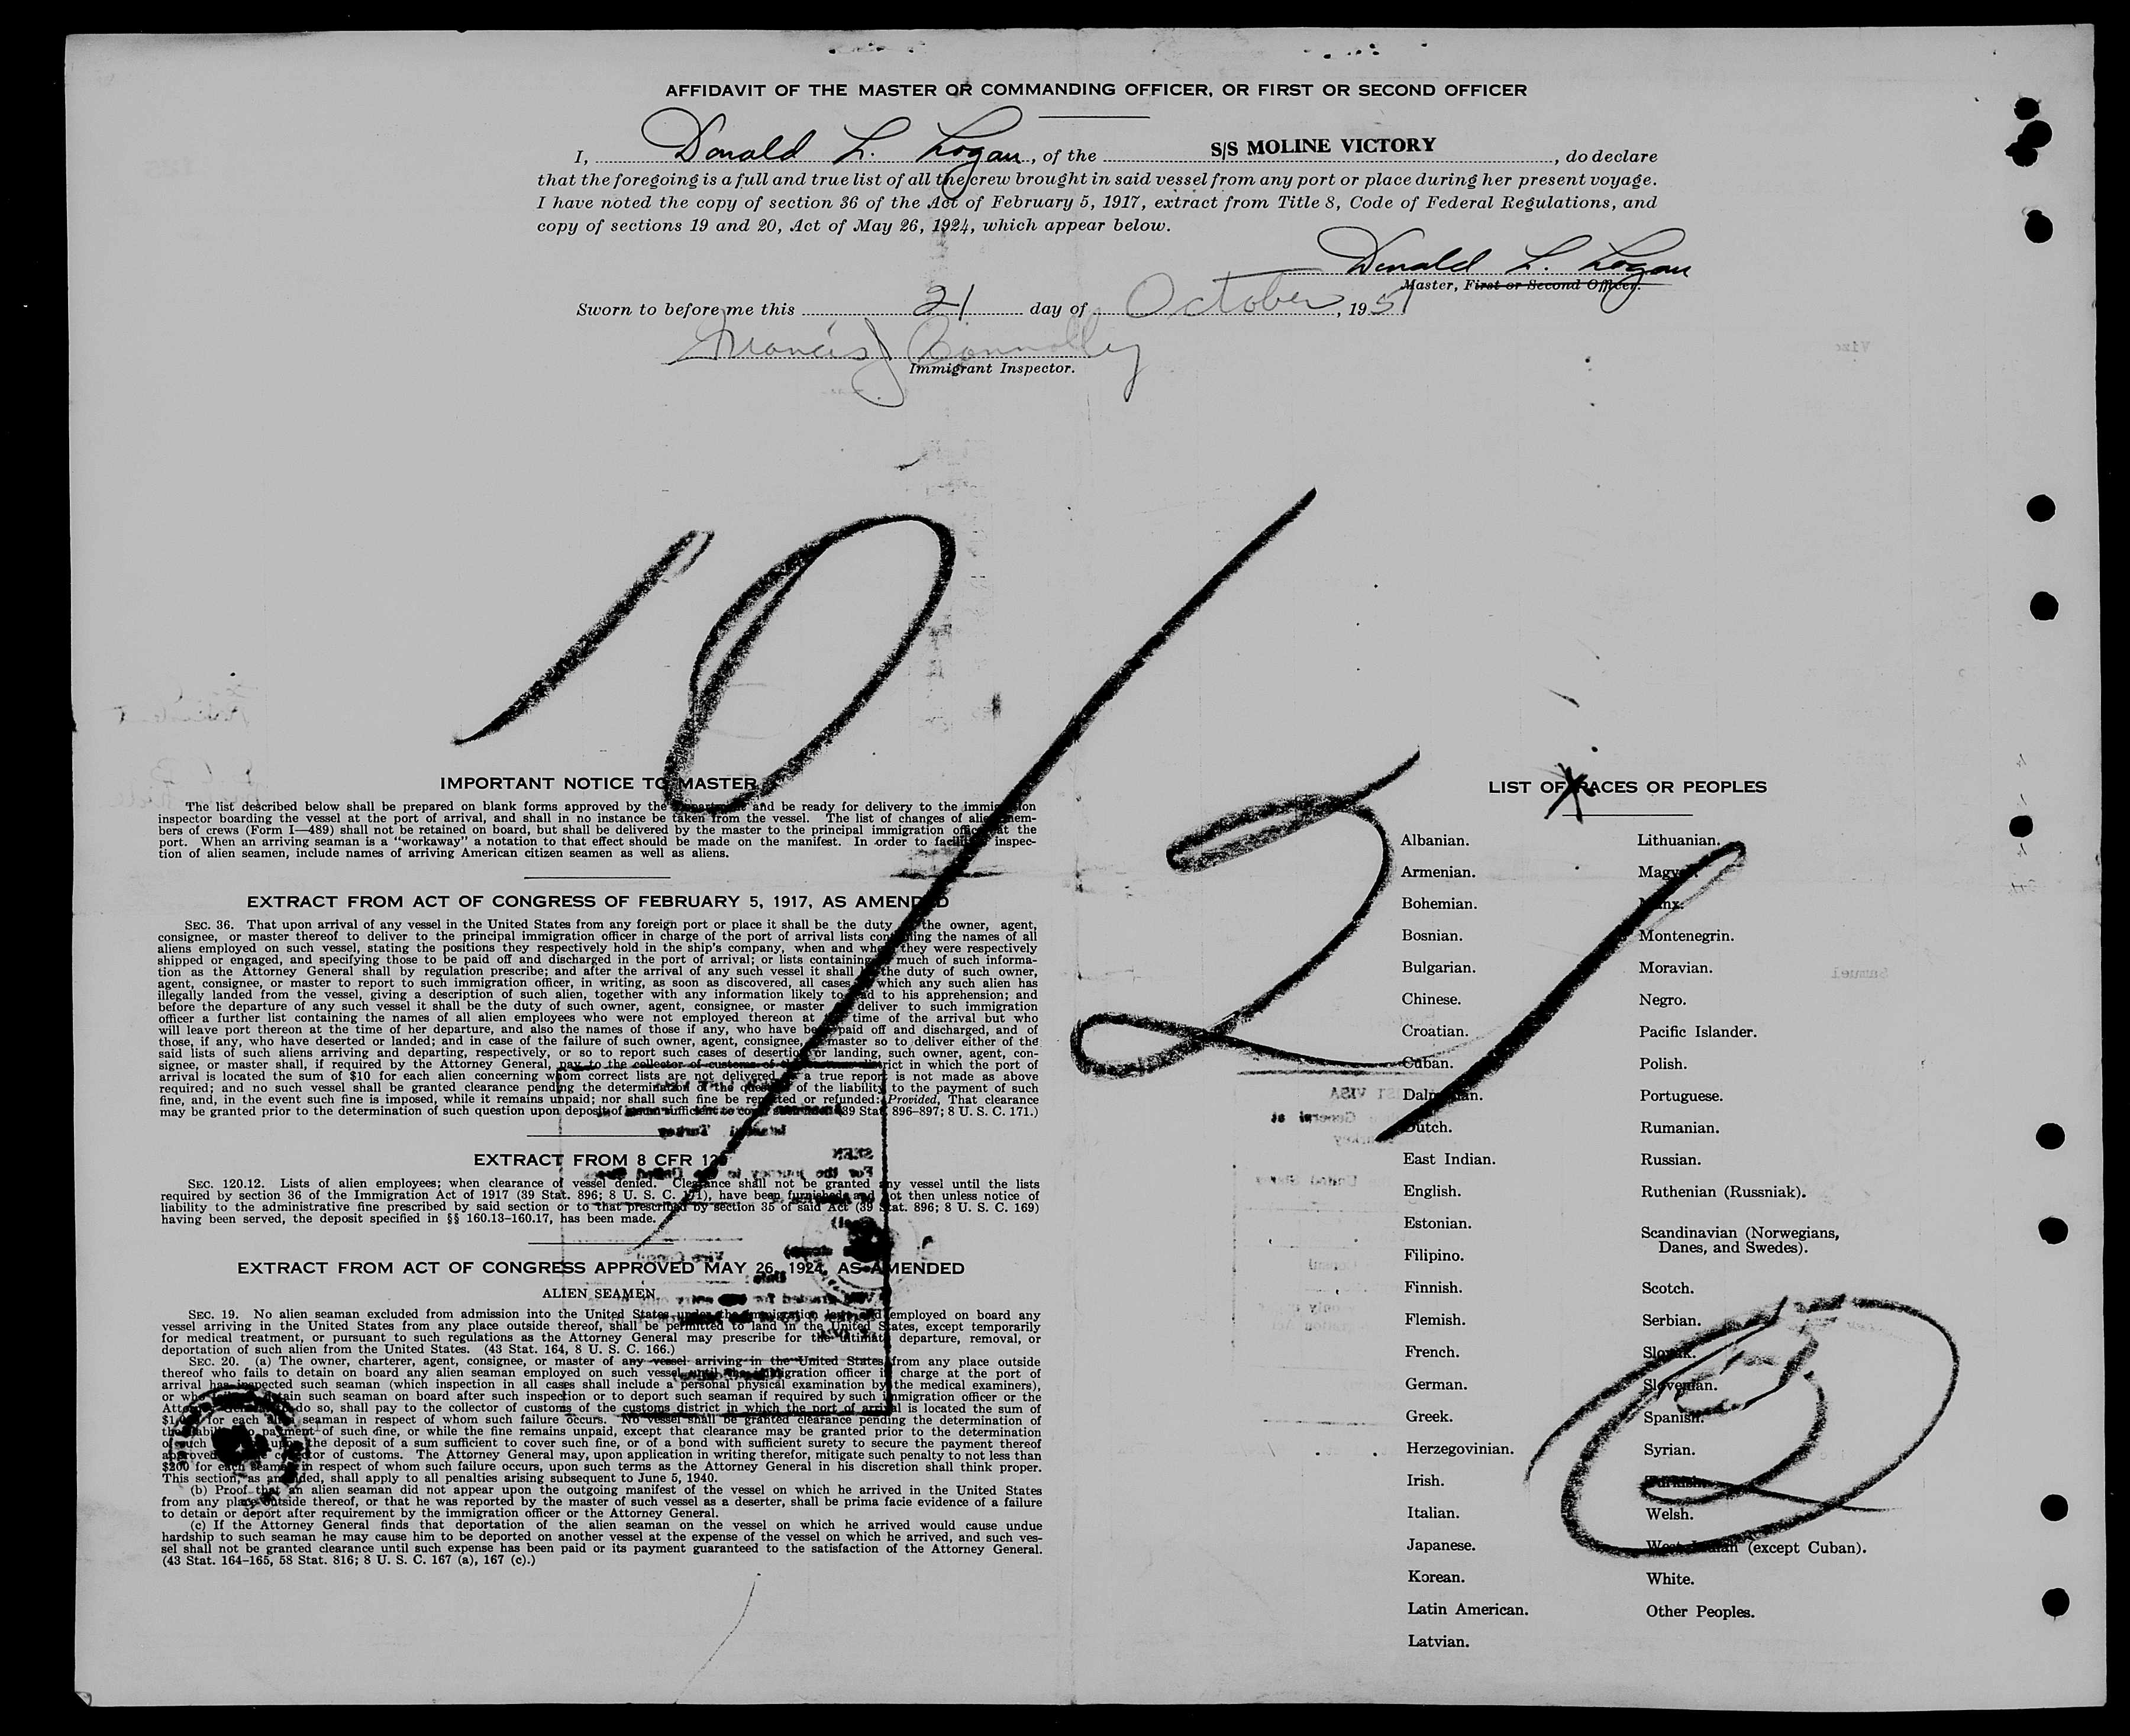 AFFIDAVIT OF THE MASTER OR COMMANDING OFFICER, OR FIRST OR SECOND OFFICER
I, Donald L. Logan, of the S/S MOLINE VICTORY, do declare
that the foregoing is a full and true list of all the crew brought in said vessel from any port or place during her present voyage.
I have noted the copy of section 36 of the Act of February 5, 1917, extract from Title 8, Code of Federal Regulations, and
copy of sections 19 and 20, Act of May 26, 1924, which appear below.
Donald L. Logan
Master, First or Second Officer.
Sworn to before me this 21 day of October, 1951
Francis J Connolly
Immigrant Inspector.
10/21/
IMPORTANT NOTICE TO MASTER
The list described below shall be prepared on blank forms approved by the Department and be ready for delivery to the immigration
inspector boarding the vessel at the port of arrival, and shall in no instance be taken from the vessel. The list of changes of alien mem-
bers of crews (Form I—489) shall not be retained on board, but shall be delivered by the master to the principal immigration officer at the
port. When an arriving seaman is a "workaway" a notation to that effect should be made on the manifest. In order to facilitate inspec-
tion of alien seamen, include names of arriving American citizen seamen as well as aliens.
EXTRACT FROM ACT OF CONGRESS OF FEBRUARY 5, 1917, AS AMENDED
SEC. 36. That upon arrival of any vessel in the United States from any foreign port or place it shall be the duty of the owner, agent,
consignee, or master thereof to deliver to the principal immigration officer in charge of the port of arrival lists containing the names of all
aliens employed on such vessel, stating the positions they respectively hold in the ship's company, when and where they were respectively
shipped or engaged, and specifying those to be paid off and discharged in the port of arrival; or lists containing so much of such informa-
tion as the Attorney General shall by regulation prescribe; and after the arrival of any such vessel it shall be the duty of such owner,
agent, consignee, or master to report to such immigration officer, in writing, as soon as discovered, all cases in which any such alien has
illegally landed from the vessel, giving a description of such alien, together with any information likely to lead to his apprehension; and
before the departure of any such vessel it shall be the duty of such owner, agent, consignee, or master to deliver to such immigration
officer a further list containing the names of all alien employees who were not employed thereon at the time of the arrival but who
will leave port thereon at the time of her departure, and also the names of those if any, who have been paid off and discharged, and of
those, if any, who have deserted or landed; and in case of the failure of such owner, agent, consignee, or master so to deliver either of the
said lists of such aliens arriving and departing, respectively, or so to report such cases of desertion or landing, such owner, agent, con-
signee, or master shall, if required by the Attorney General, pay to the collector of customs of the customs district in which the port of
arrival is located the sum of $10 for each alien concerning whom correct lists are not delivered or a true report is not made as above
required; and no such vessel shall be granted clearance pending the determination of the question of the liability to the payment of such
fine, and, in the event such fine is imposed, while it remains unpaid; nor shall such fine be remitted or refunded: Provided, That clearance
may be granted prior to the determination of such question upon deposit of a sum sufficient to cover such fine. (39 Stat. 896-897; 8 U. S. C. 171.)
EXTRACT FROM 8 CFR 120
SEC. 120.12. Lists of alien employees; when clearance of vessel denied. Clearance shall not be granted any vessel until the lists
required by section 36 of the Immigration Act of 1917 (39 Stat. 896; 8 U. S. C. 171), have been furnished and not then unless notice of
liability to the administrative fine prescribed by said section or to that prescribed by section 35 of said Act (39 Stat. 896; 8 U. S. C. 169)
having been served, the deposit specified in §§ 160.13-160.17, has been made.
EXTRACT FROM ACT OF CONGRESS APPROVED MAY 26, 1924, AS AMENDED
ALIEN SEAMEN
SEC. 19. No alien seaman excluded from admission into the United States under the immigration laws and employed on board any
vessel arriving in the United States from any place outside thereof, shall be permitted to land in the United States, except temporarily
for medical treatment, or pursuant to such regulations as the Attorney General may prescribe for the ultimate departure, removal, or
deportation of such alien from the United States. (43 Stat. 164, 8 U. S. C. 166.)
SEC. 20. (a) The owner, charterer, agent, consignee, or master of any vessel arriving in the United States from any place outside
thereof who fails to detain on board any alien seaman employed on such vessel until the immigration officer in charge at the port of
arrival has inspected such seaman (which inspection in all cases shall include a personal physical examination by the medical examiners),
or who fails to detain such seaman on board after such inspection or to deport such seaman if required by such immigration officer or the
Attorney General to do so, shall pay to the collector of customs of the customs district in which the port of arrival is located the sum of
$1,000 for each alien seaman in respect of whom such failure occurs. No vessel shall be granted clearance pending the determination of
the liability to payment of such fine, or while the fine remains unpaid, except that clearance may be granted prior to the determination
of such question upon the deposit of a sum sufficient to cover such fine, or of a bond with sufficient surety to secure the payment thereof
approved by the collector of customs. The Attorney General may, upon application in writing therefor, mitigate such penalty to not less than
$200 for each seaman in respect of whom such failure occurs, upon such terms as the Attorney General in his discretion shall think proper.
This section, as amended, shall apply to all penalties arising subsequent to June 5, 1940.
(b) Proof that an alien seaman did not appear upon the outgoing manifest of the vessel on which he arrived in the United States
from any place outside thereof, or that he was reported by the master of such vessel as a deserter, shall be prima facie evidence of a failure
to detain or deport after requirement by the immigration officer or the Attorney General.
(c) If the Attorney General finds that deportation of the alien seaman on the vessel on which he arrived would cause undue
hardship to such seaman he may cause him to be deported on another vessel at the expense of the vessel on which he arrived, and such ves-
sel shall not be granted clearance until such expense has been paid or its payment guaranteed to the satisfaction of the Attorney General.
(43 Stat. 164-165, 58 Stat. 816; 8 U. S. C. 167 (a), 167 (c).)
LIST OF RACES OR PEOPLES
Albanian.
Armenian.
Bohemian.
Bosnian.
Bulgarian.
Chinese.
Croatian.
Cuban.
Dalmatian.
Dutch.
East Indian.
English.
Estonian.
Filipino.
Finnish.
Flemish.
French.
German.
Greek.
Herzegovinian.
Irish.
Italian.
Japanese.
Korean.
Latin American.
Latvian.
Lithuanian.
Magyar.
Manx.
Montenegrin.
Moravian.
Negro.
Pacific Islander.
Polish.
Portuguese.
Rumanian.
Russian.
Ruthenian (Russniak).
Scandinavian (Norwegians,
Danes, and Swedes).
Scotch.
Serbian.
Slovak.
Slovenian.
Spanish.
Syrian.
Turkish.
Welsh.
West Indian (except Cuban).
White.
Other Peoples.
2